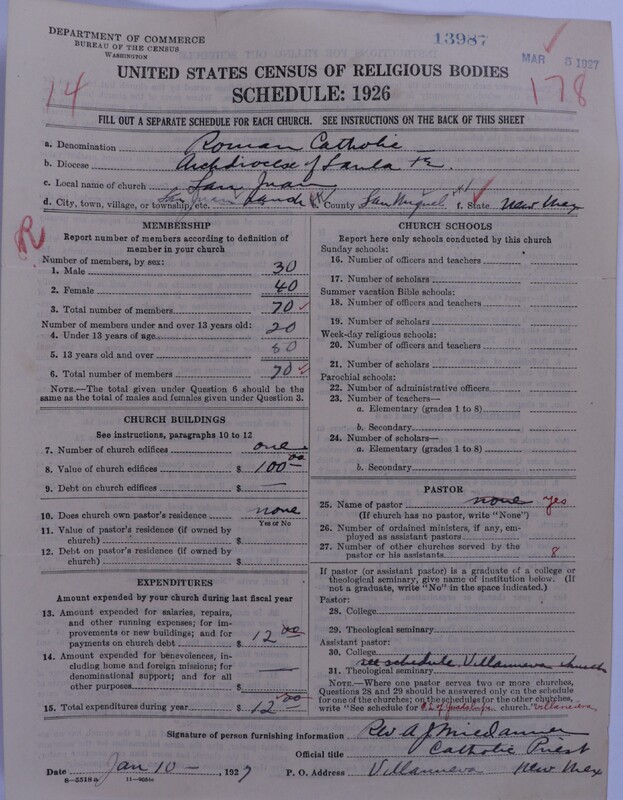 DEPARTMENT OF COMMERCE
BUREAU OF THE CENSUS
WASHINGTON
13987
MAR 5 1927
14
UNITED STATES CENSUS OF RELIGIOUS BODIES
SCHEDULE: 1926
178
FILL OUT A SEPARATE SCHEDULE FOR EACH CHURCH. SEE INSTRUCTIONS ON THE BACK OF THIS SHEET
a. Denomination Roman Catholic
b. Diocese Archdiocese of Santa Fe.
c. Local name of church San Juan
d. City, town, village, or township, etc. San Juan e. County San Miguel f. State New Mex
R
MEMBERSHIP
Report number of members according to definition of
member in your church
Number of members, by sex:
1. Male 30
2. Female 40
3. Total number of members 70
Number of members under and over 13 years old:
4. Under 13 years of age 20
5. 13 years old and over 50
6. Total number of members 70
NOTE.—The total given under Question 6 should be
same as the total of males and females given under Question 3.
CHURCH BUILDINGS
See instructions, paragraphs 10 to 12
7. Number of church edifices one
8. Value of church edifices $ 100.00
9. Debt on church edifices $ —
10. Does church own pastor's residence none
Yes or No
11. Value of pastor's residence (if owned by
church) $
12. Debt on pastor's residence (if owned by
church) $
EXPENDITURES
Amount expended by your church during last fiscal year
13. Amount expended for salaries, repairs,
and other running expenses; for im-
provements or new buildings; and for
payments on church debt $ 12.00
14. Amount expended for benevolences, in-
cluding home and foreign missions; for
denominational support; and for all
other purposes $ —
15. Total expenditures during year $ 12.00
CHURCH SCHOOLS
Report here only schools conducted by this church
Sunday schools:
16. Number of officers and teachers
17. Number of scholars
Summer vacation Bible schools:
18. Number of officers and teachers
19. Number of scholars
Week-day religious schools:
20. Number of officers and teachers
21. Number of scholars
Parochial schools:
22. Number of administrative officers
23. Number of teachers—
a. Elementary (grades 1 to 8)
b. Secondary
24. Number of scholars—
a. Elementary (grades 1 to 8)
b. Secondary
PASTOR
25. Name of pastor none yes
(If church has no pastor, write "None")
26. Number of ordained ministers, if any, em-
ployed as assistant pastors
27. Number of other churches served by the
pastor or his assistants 8
If pastor (or assistant pastor) is a graduate of a college or
theological seminary, give name of institution below. (If
not a graduate, write "No" in the space indicated.)
Pastor:
28. College
29. Theological seminary
Assistant pastor:
30. College
31. Theological seminary see schedule Villanueva church
NOTE.—Where one pastor serves two or more churches,
Questions 28 and 29 should be answered only on the schedule
for one of the churches; on the schedules for the other churches,
write "See schedule for O.L. of Guadalupe church." Villanueva
Signature of person furnishing information Rev A J
Official title Catholic Priest
Date Jan 10 —, 1927 P. O. Address Villanueva New Mex
8—5518a